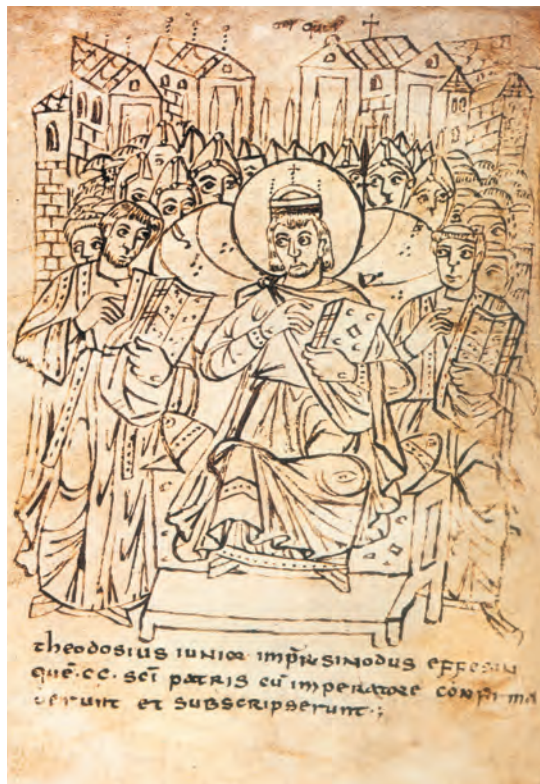 theodosius iunior imp̄r sinodus effesin
quē . cc . sc̄i patris cū imperatore confirma
uerunt et subscripserunt ·;